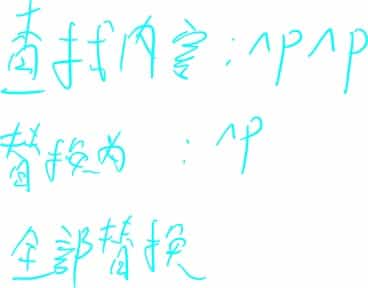 查找内容:^p^p
替换为:^p
全部替换